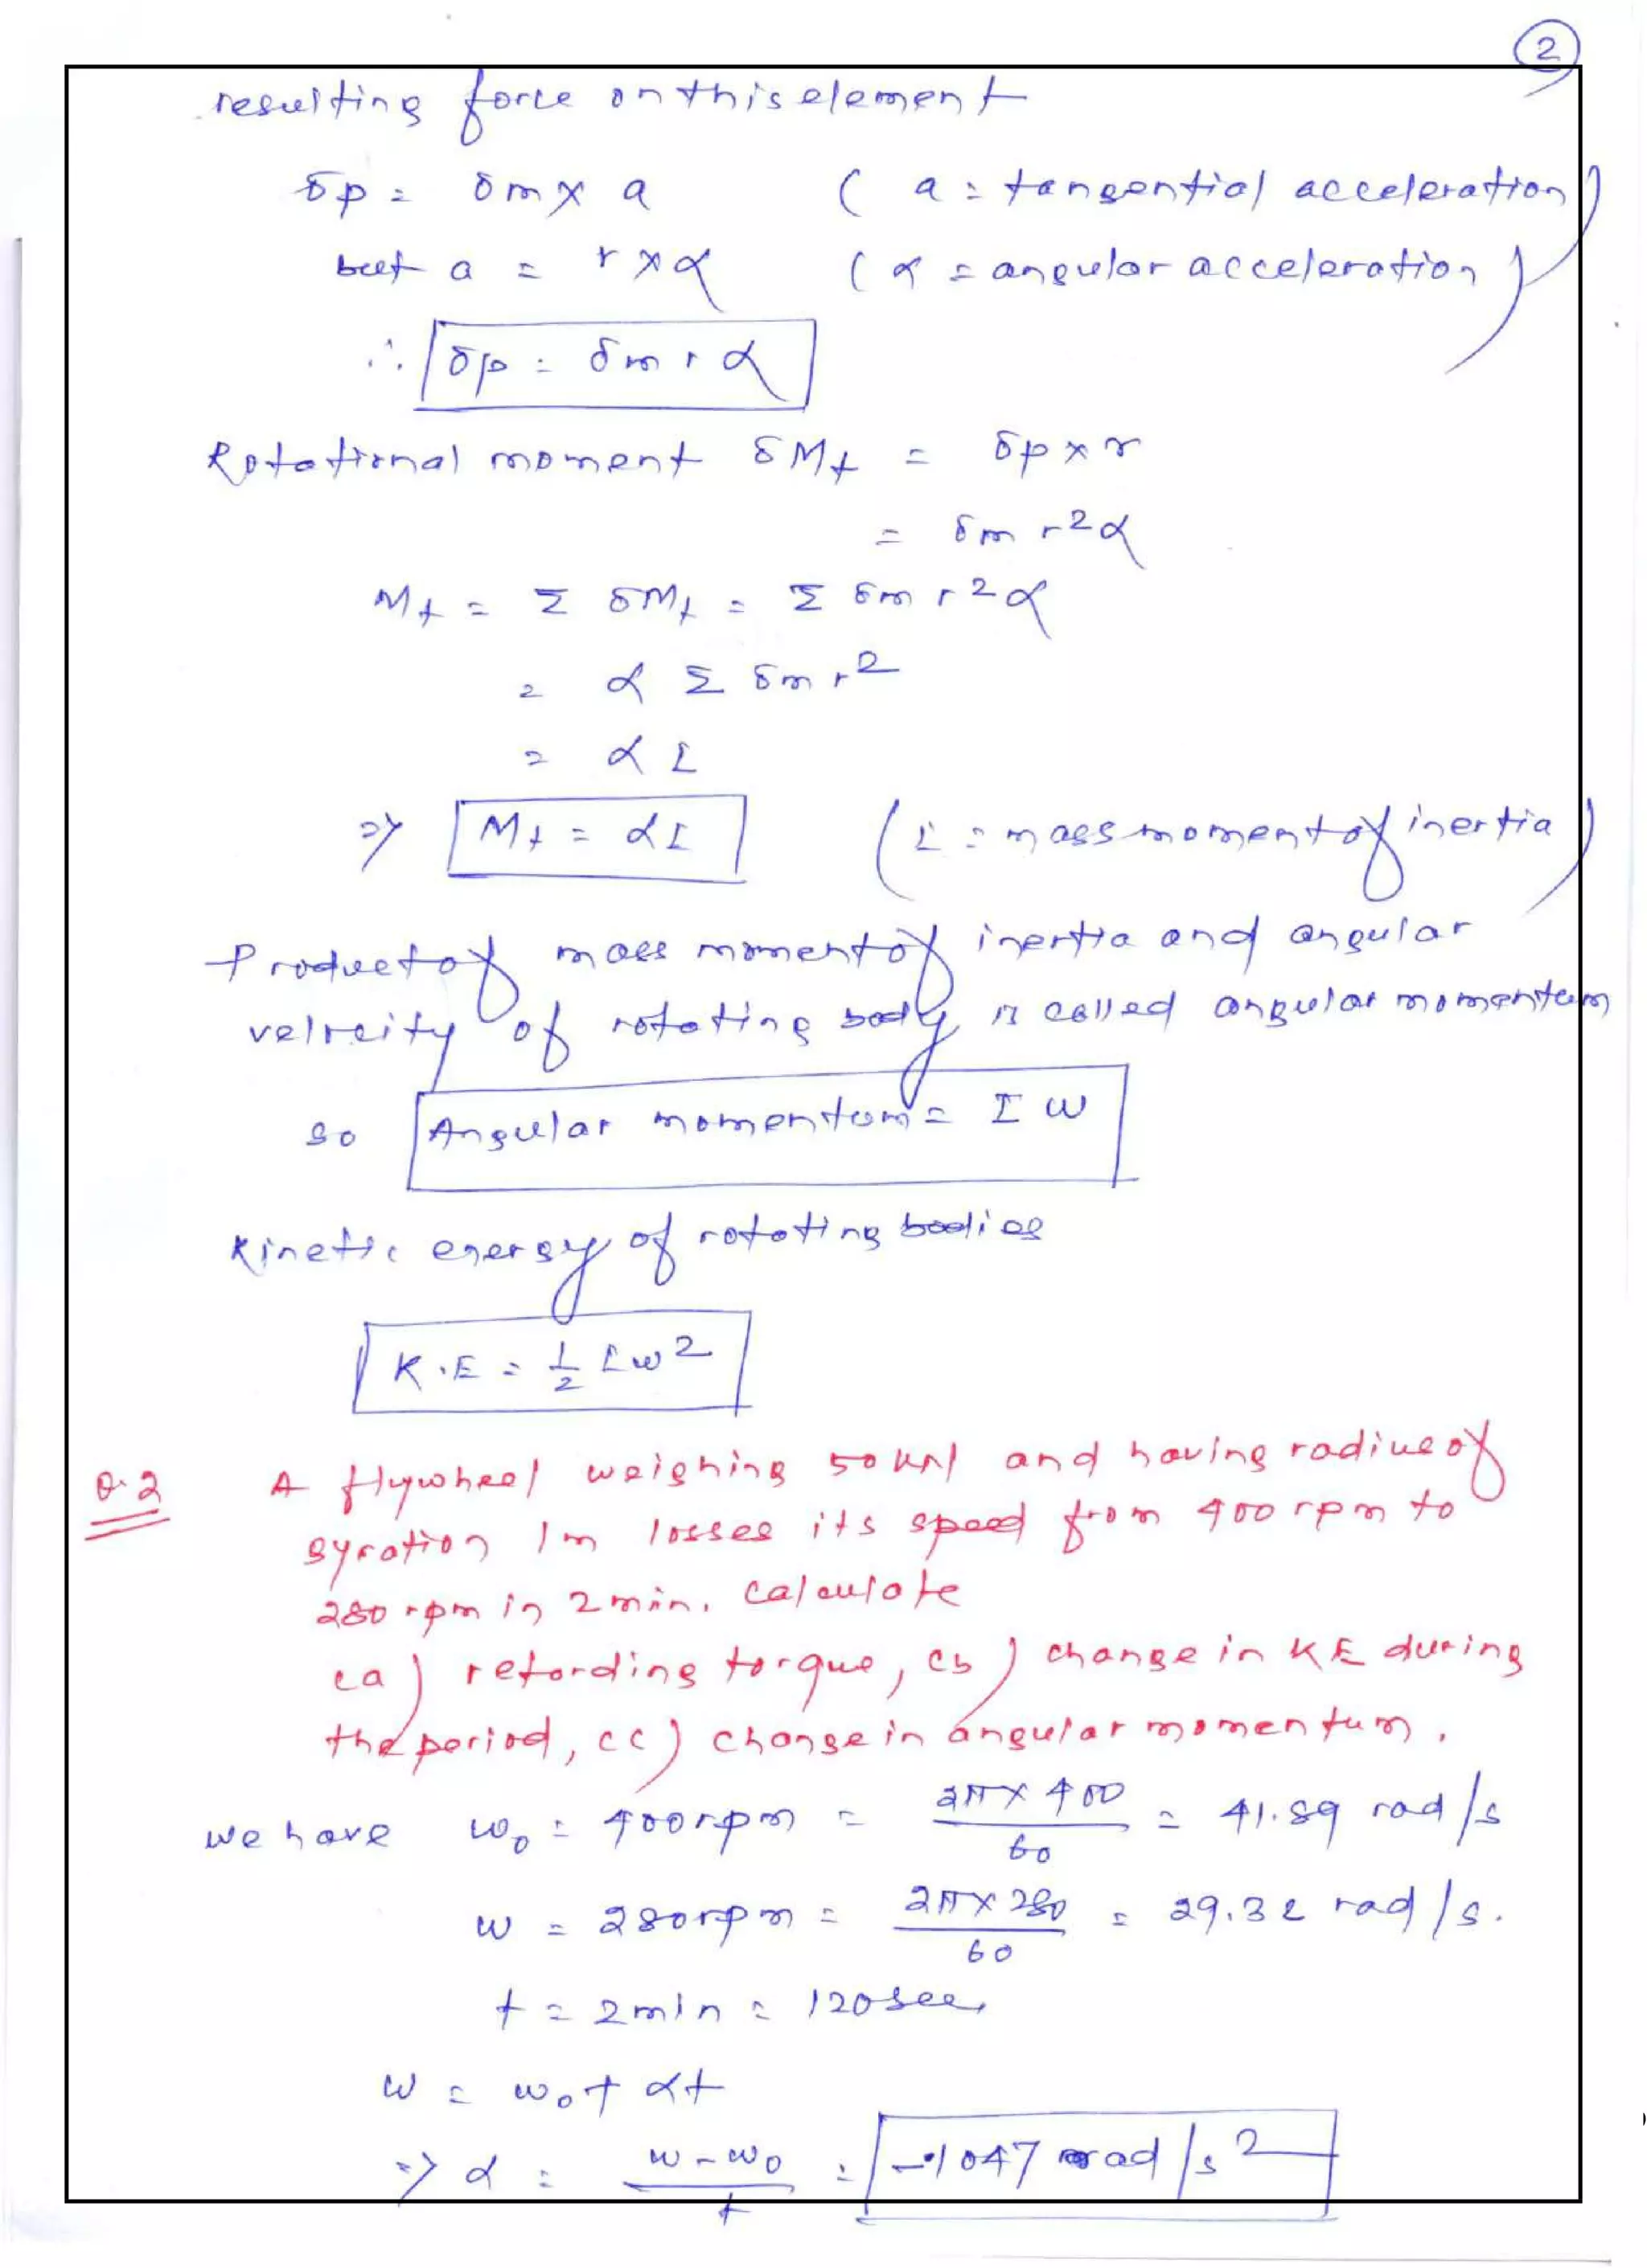 2
resulting force on this element
δp = δm × a ( a = tangential acceleration)
but a = r × α ( α = angular acceleration)
∴ δp = δm r α
Rotational moment δMt = δp × r
= δm r2α
Mt = Σ δMt = Σ δm r2α
= α Σ δm r2
= α I
=> Mt = αI (I = mass moment of inertia)
Product of mass moment of inertia and angular
velocity of rotating body is called angular momentum
so Angular momentum = I ω
Kinetic energy of rotating bodies
K.E = 1/2 Iω2
Q.2 A flywheel weighing 50 kN and having radius of
gyration 1m losses its speed from 400 rpm to
280 rpm in 2 min. Calculate
(a) retarding torque, (b) change in KE during
the period, (c) change in angular momentum.
we have ω0 = 400 rpm = 2π × 400 / 60 = 41.89 rad/s
ω = 280 rpm = 2π × 280 / 60 = 29.32 rad/s.
t = 2 min = 120 sec,
ω = ω0 + αt
=> α = ω - ω0 / t = -.1047 rad/s2